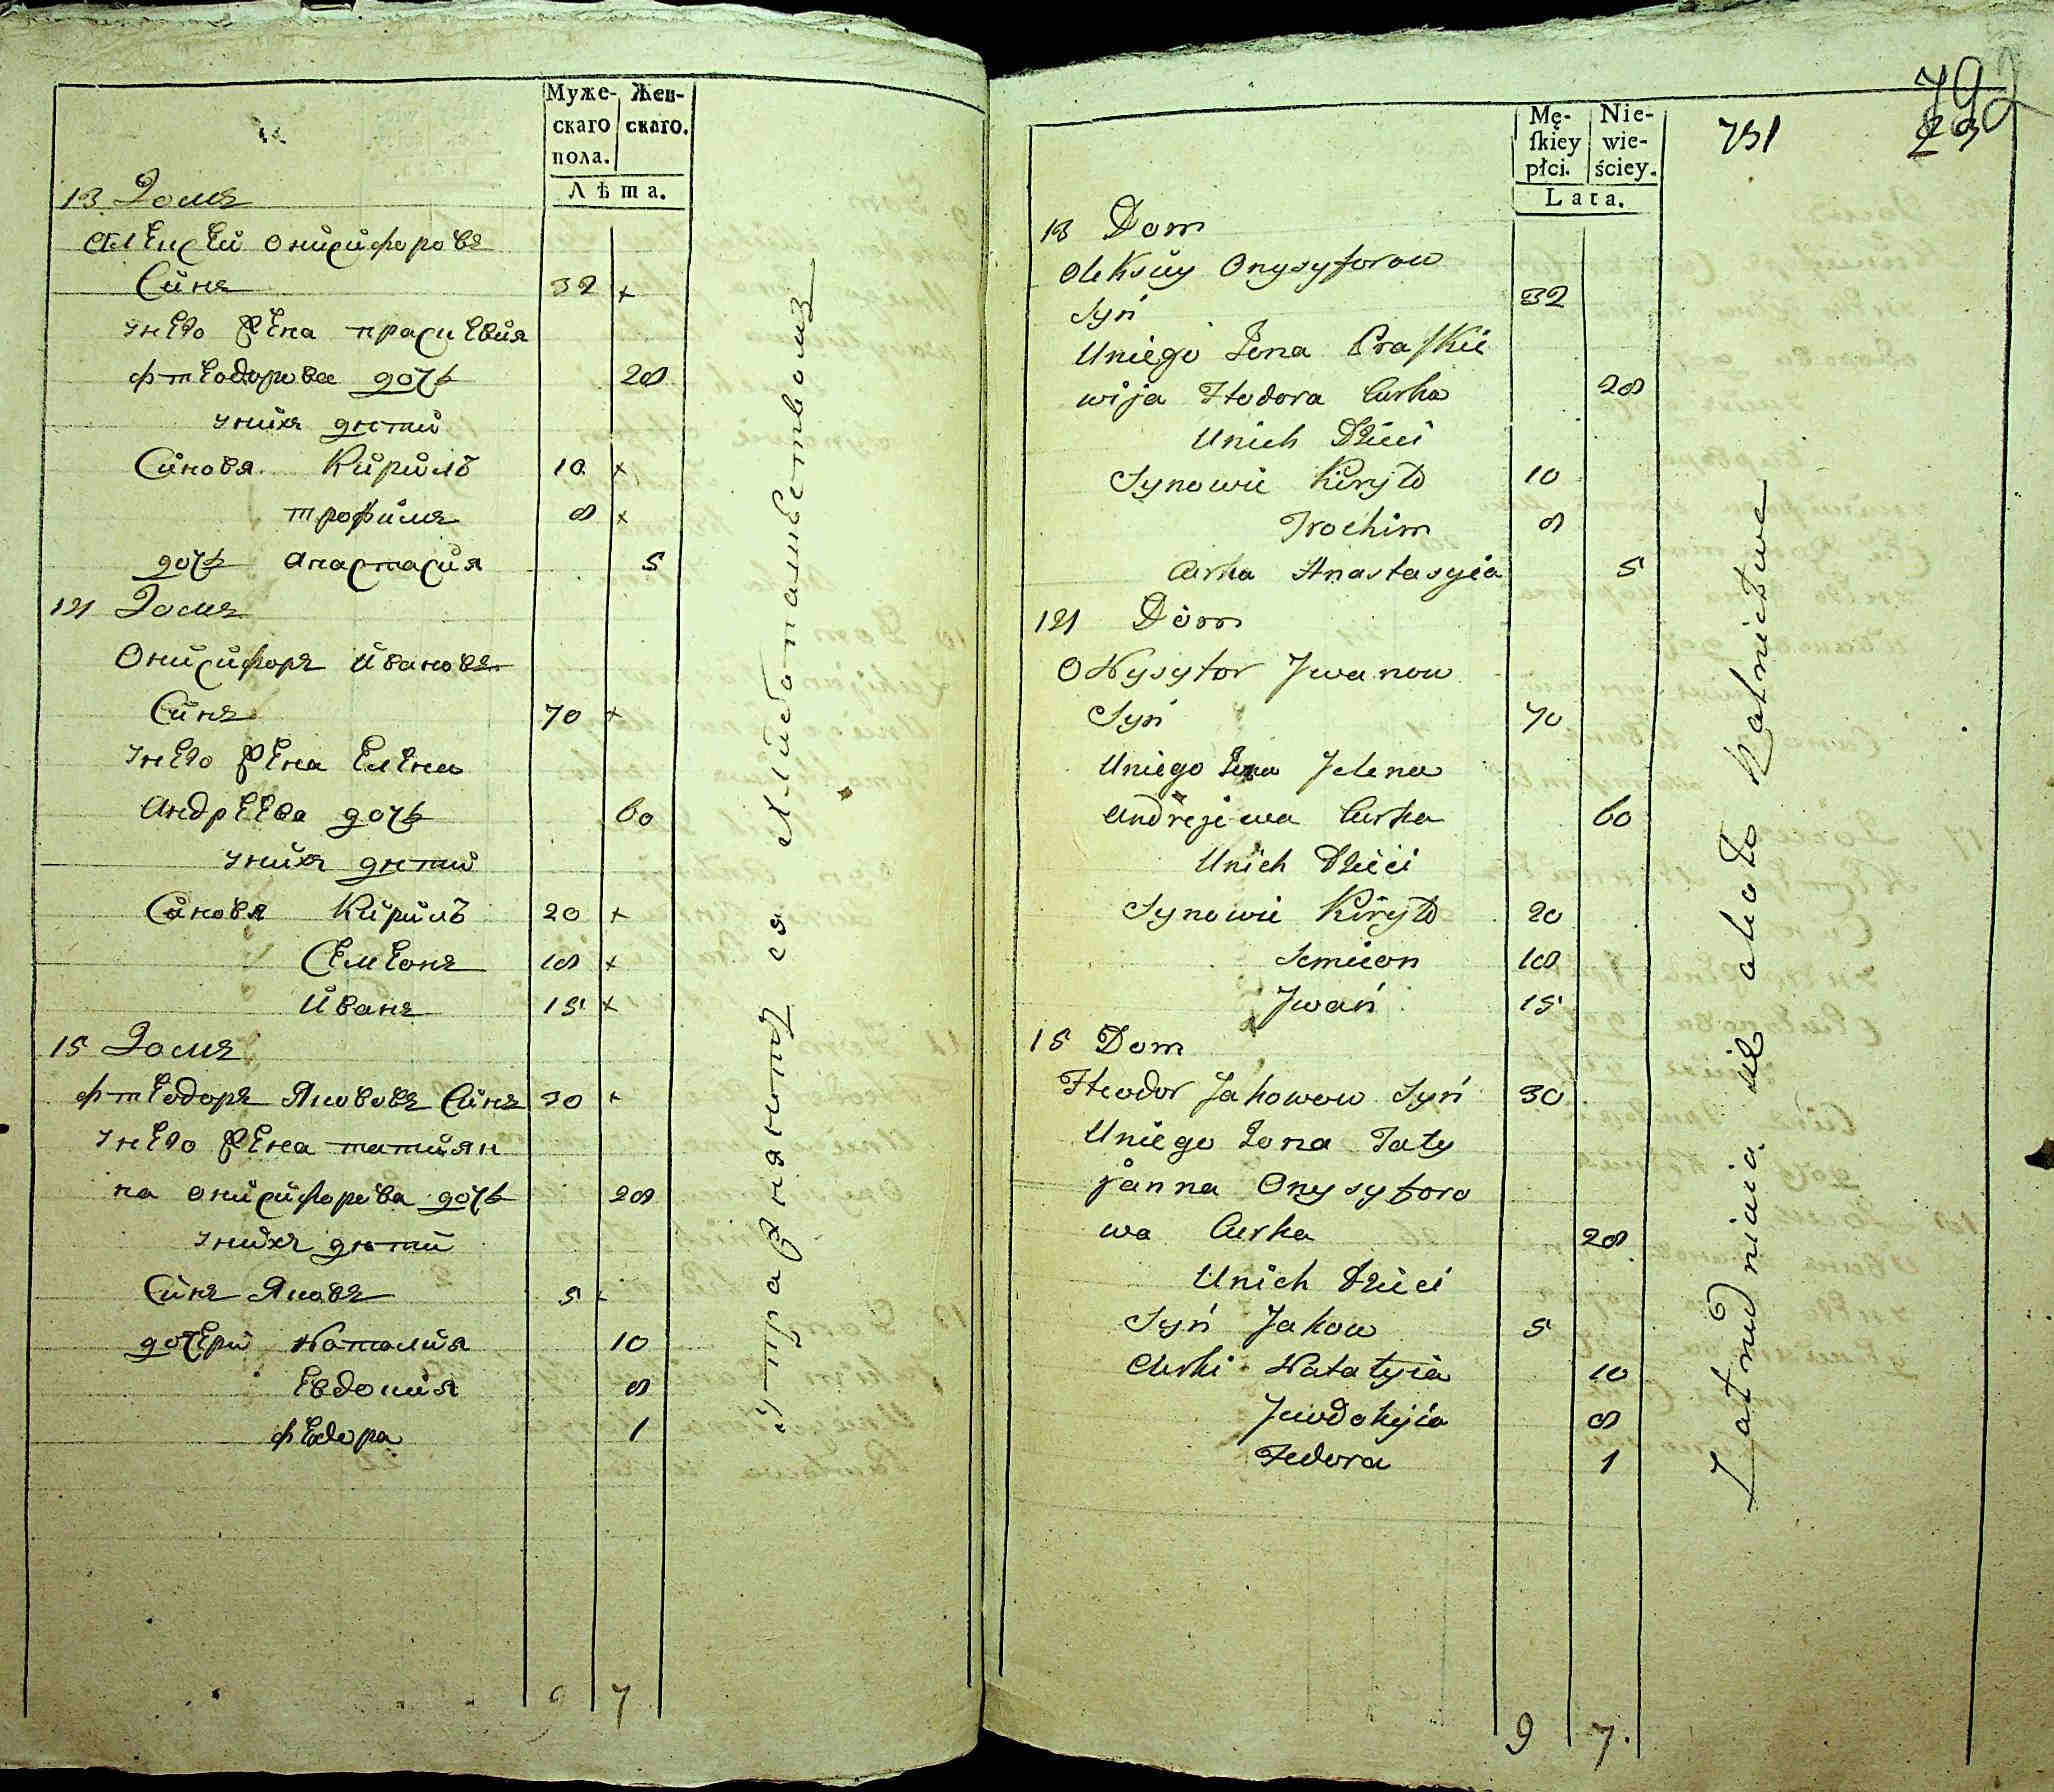 Муже-
скаго
пола.
Жен-
скаго.
Лѣта.
13 Домъ
Алексей Онисифоровъ
Синъ 32 x
унего жена праскевия
фтеодорова дочь 28
унихъ дѣти
Синовя Кирилъ 10 x
трофимъ 8 x
дочь Анастасия 5
14 Домъ
Онисифоръ Ивановъ
Синъ 70 x
унего жена Елена
Андреева дочь 60
унихъ дѣти
Синовя Кирилъ 20 x
Семионъ 18 x
Иванъ 15 x
15 Домъ
фтеодоръ Якововъ Синъ 30 x
унего жена татиян
на Онисифорова дочь 28
унихъ дѣти
Синъ Яковъ 5
дочери Наталия 10
Евдокия 8
федора 1
9 7
упражняютця Хлибопашеством
Mę-
ſkiey
płci.
Nie-
wie-
ściey.
Lata.
731
792
23
13 Dom
Oleksiiy Onysyforow
Syń 32
Uniego Żona Praſkie
wija Fteodora Curka 28
Unich Dzieci
Synowie Kiryło 10
Trochim 8
Curka Anastasyia 5
14 Dom
ONysyfor Jwanow
Syń 70
Uniego Żona Jelena
Andrejewa Curka 60
Unich Dzieci
Synowie Kiryło 20
Semieon 18
Jwań 15
15 Dom
Fteodor Jakowow Syń 30
Uniego Żona Taty
janna Onysyforo
wa Curka 28
Unich Dzieci
Syń Jakow 5
Curki Natalyia 10
Jewdokyia 8
Fedora 1
9 7.
Zatrudniaią się około Rolnictwa